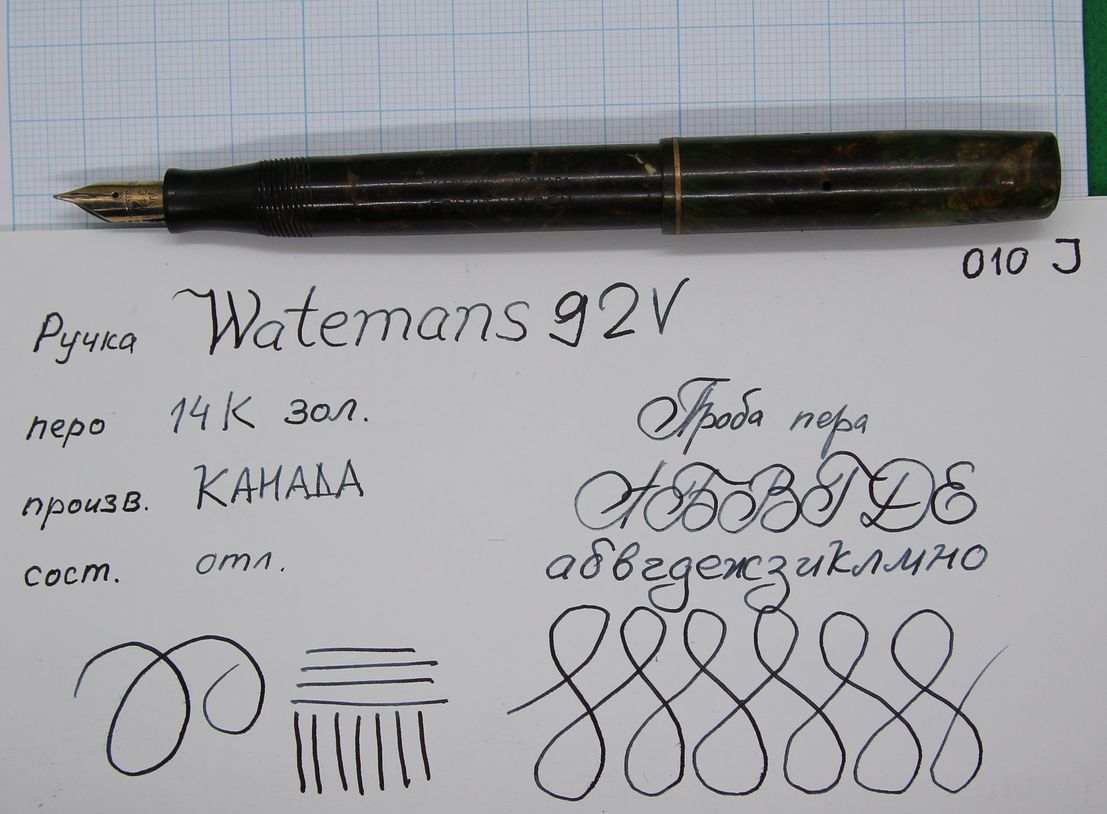 010 J
Ручка Watemans 92V
перо 14К зол.
произв. КАНАДА
сост. отл.
Проба пера
АБВГДЕ
абвгдежзиклмно